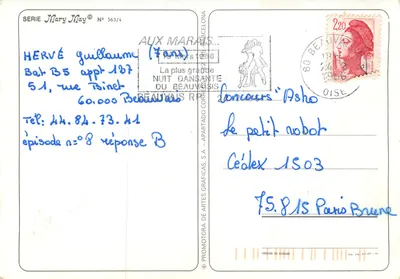 SERIE Mary May ® N° 363/4
AUX MARAIS...
La plus grande
NUIT DANSANTE
DU BEAUVAISIS
BEAUVAIS RP
60 BEAUVAIS
OISE
2,20
HERVÉ Guillaume (7 ans)
Bat B5 appt 137
51, rue Binet
60.000 Beauvais
Tel: 44.84.73.41
épisode n°8 réponse B
Concours "Astro
Le petit robot
Cédex 1503
75.815 Paris Brune
© PROMOTORA DE ARTES GRAFICAS, S.A. - APARTADO CORREOS BARCELONA